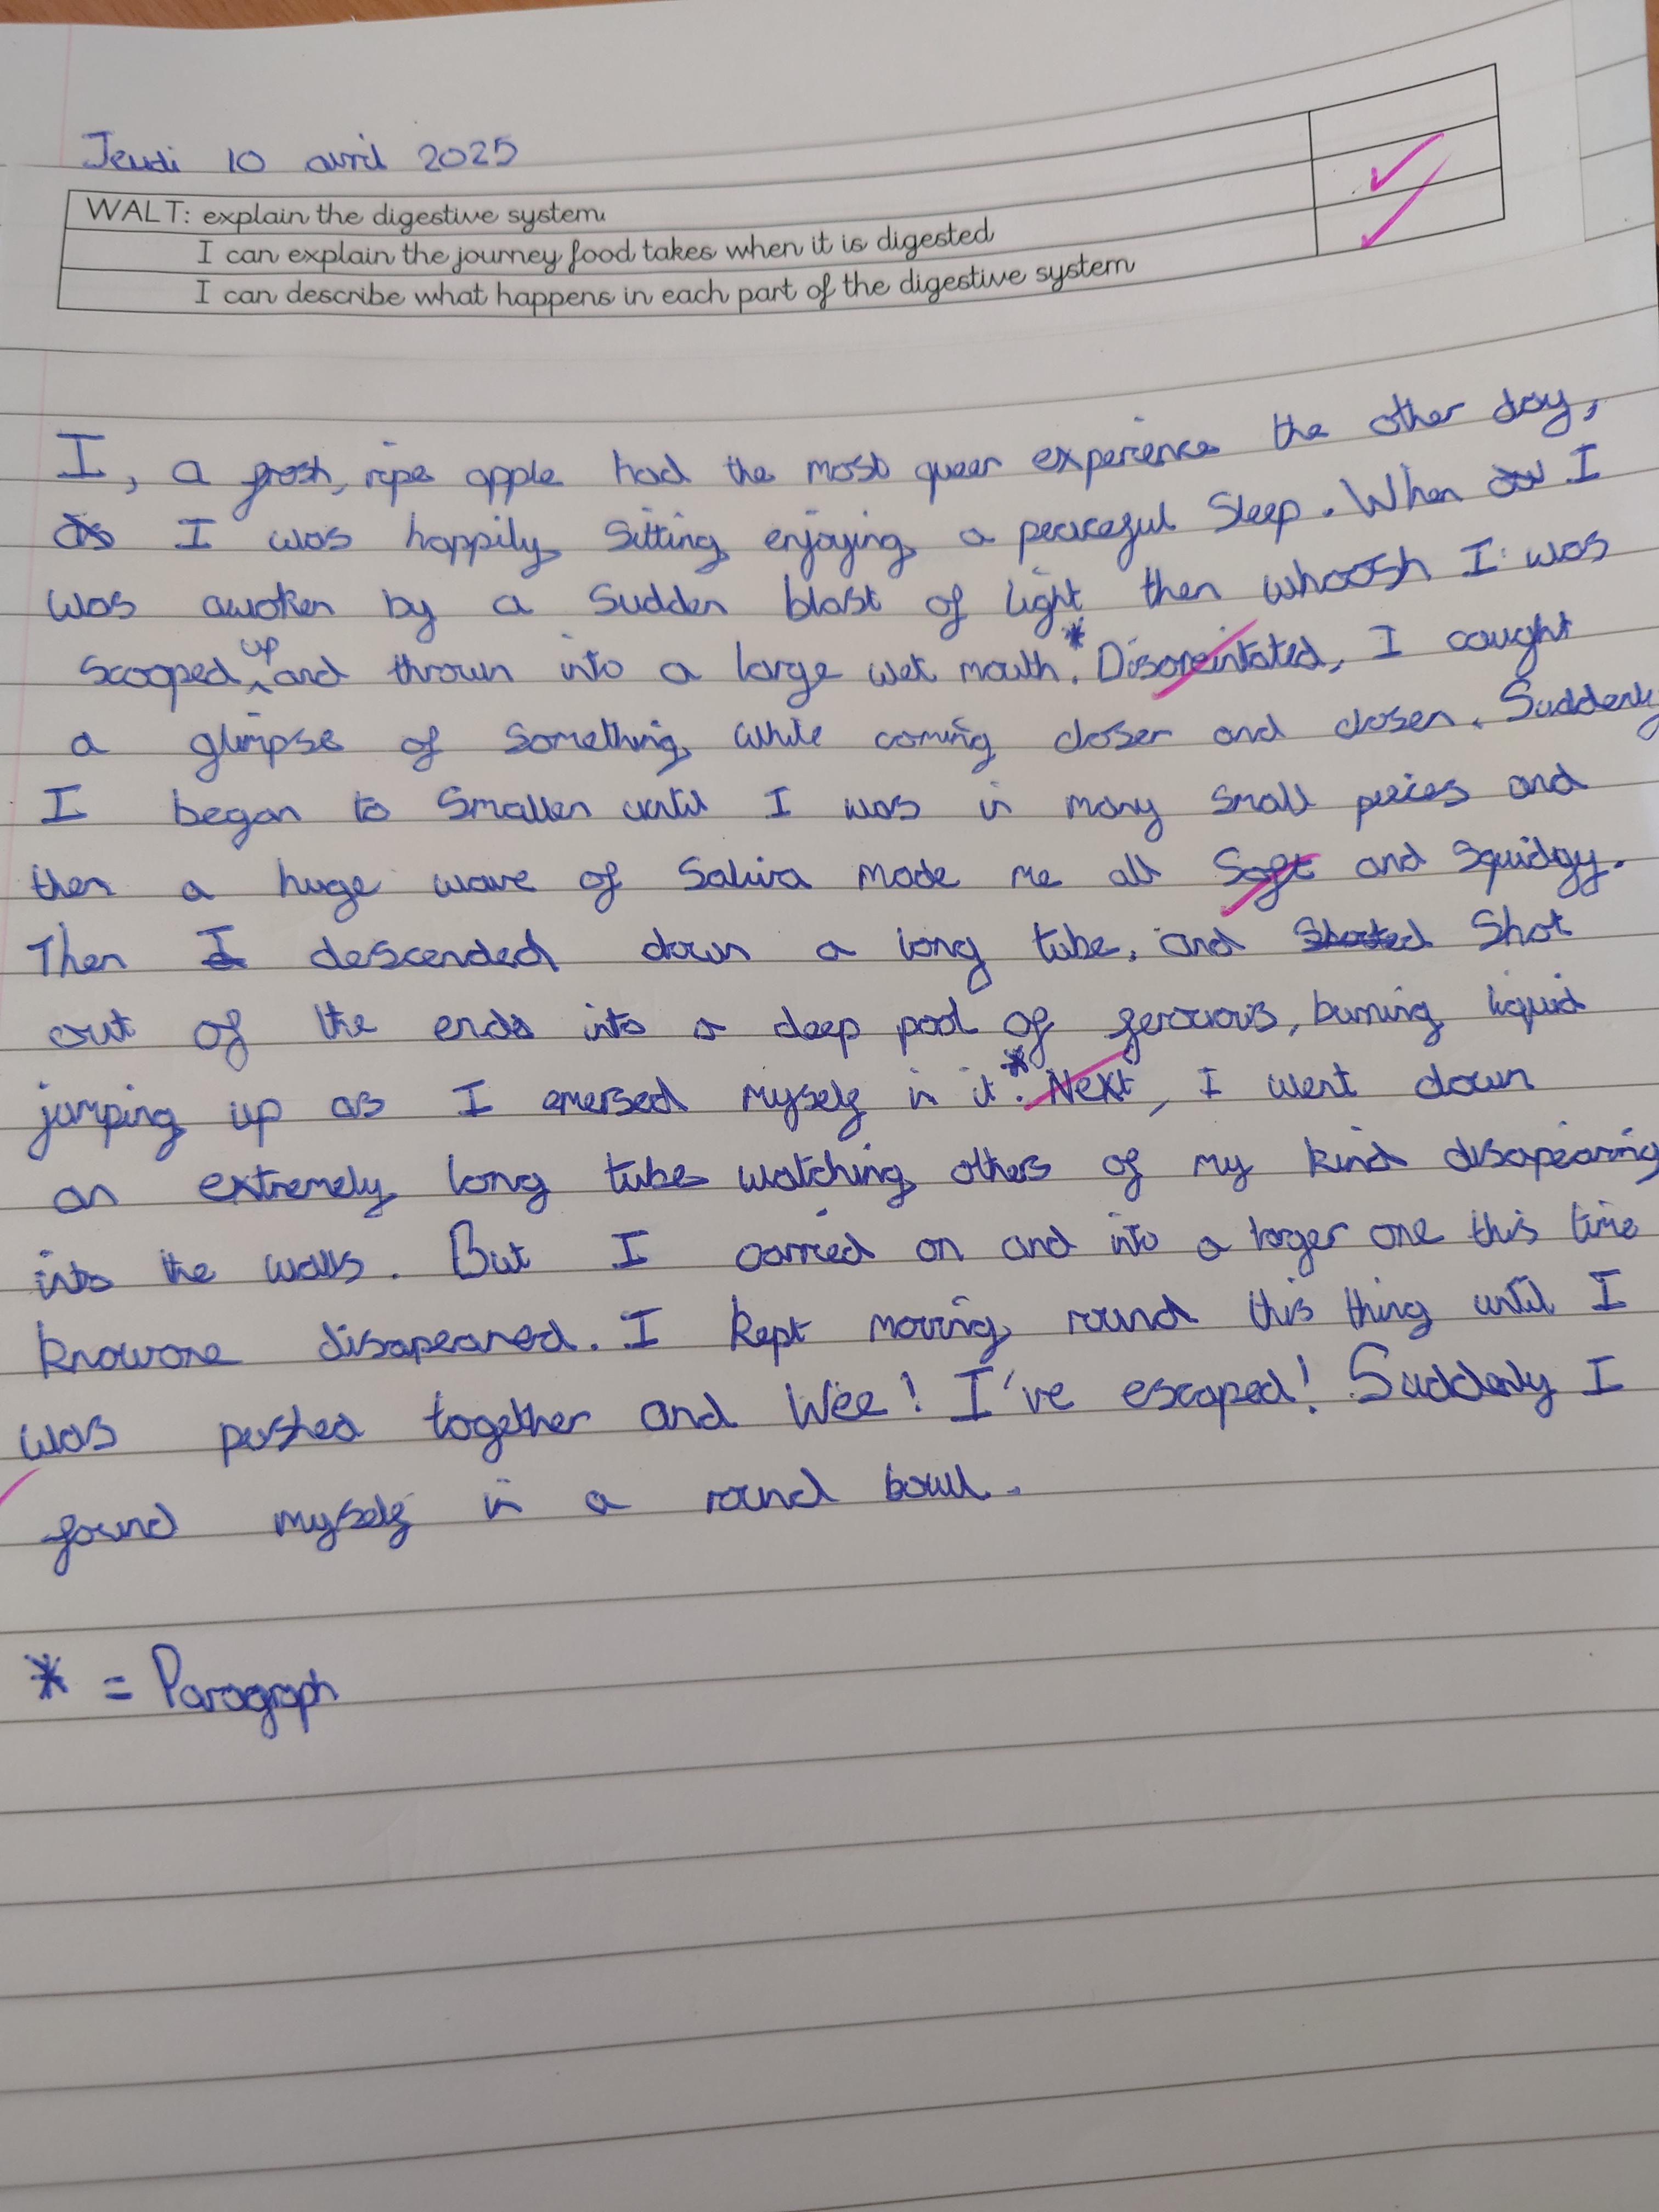 Jeudi 10 avril 2025
WALT: explain the digestive system
I can explain the journey food takes when it is digested
I can describe what happens in each part of the digestive system
I, a fresh, ripe apple had the most queer experience the other day,
as I was happily sitting enjoying a peaceful sleep. When I
was awoken by a sudden blast of light then whoosh I was
scooped up and thrown into a large wet mouth.* Disoreintated, I caught
a glimpse of something white coming closer and closer. Suddenly
I began to smaller until I was in many small peices and
then a huge wave of saliva made me all soft and squidgy.
Then I descended down a long tube, and shooted shot
out of the ends into a deep pool of ferocious, burning liquid
jumping up as I emersed myself in it.* Next, I went down
an extremely long tube watching others of my kind disapearing
into the walls. But I carried on and into a larger one this time
knowone disapeared. I kept moving round this thing until I
was pushed together and Wee! I've escaped! Suddenly I
found myself in a round bowl.
* = Paragraph